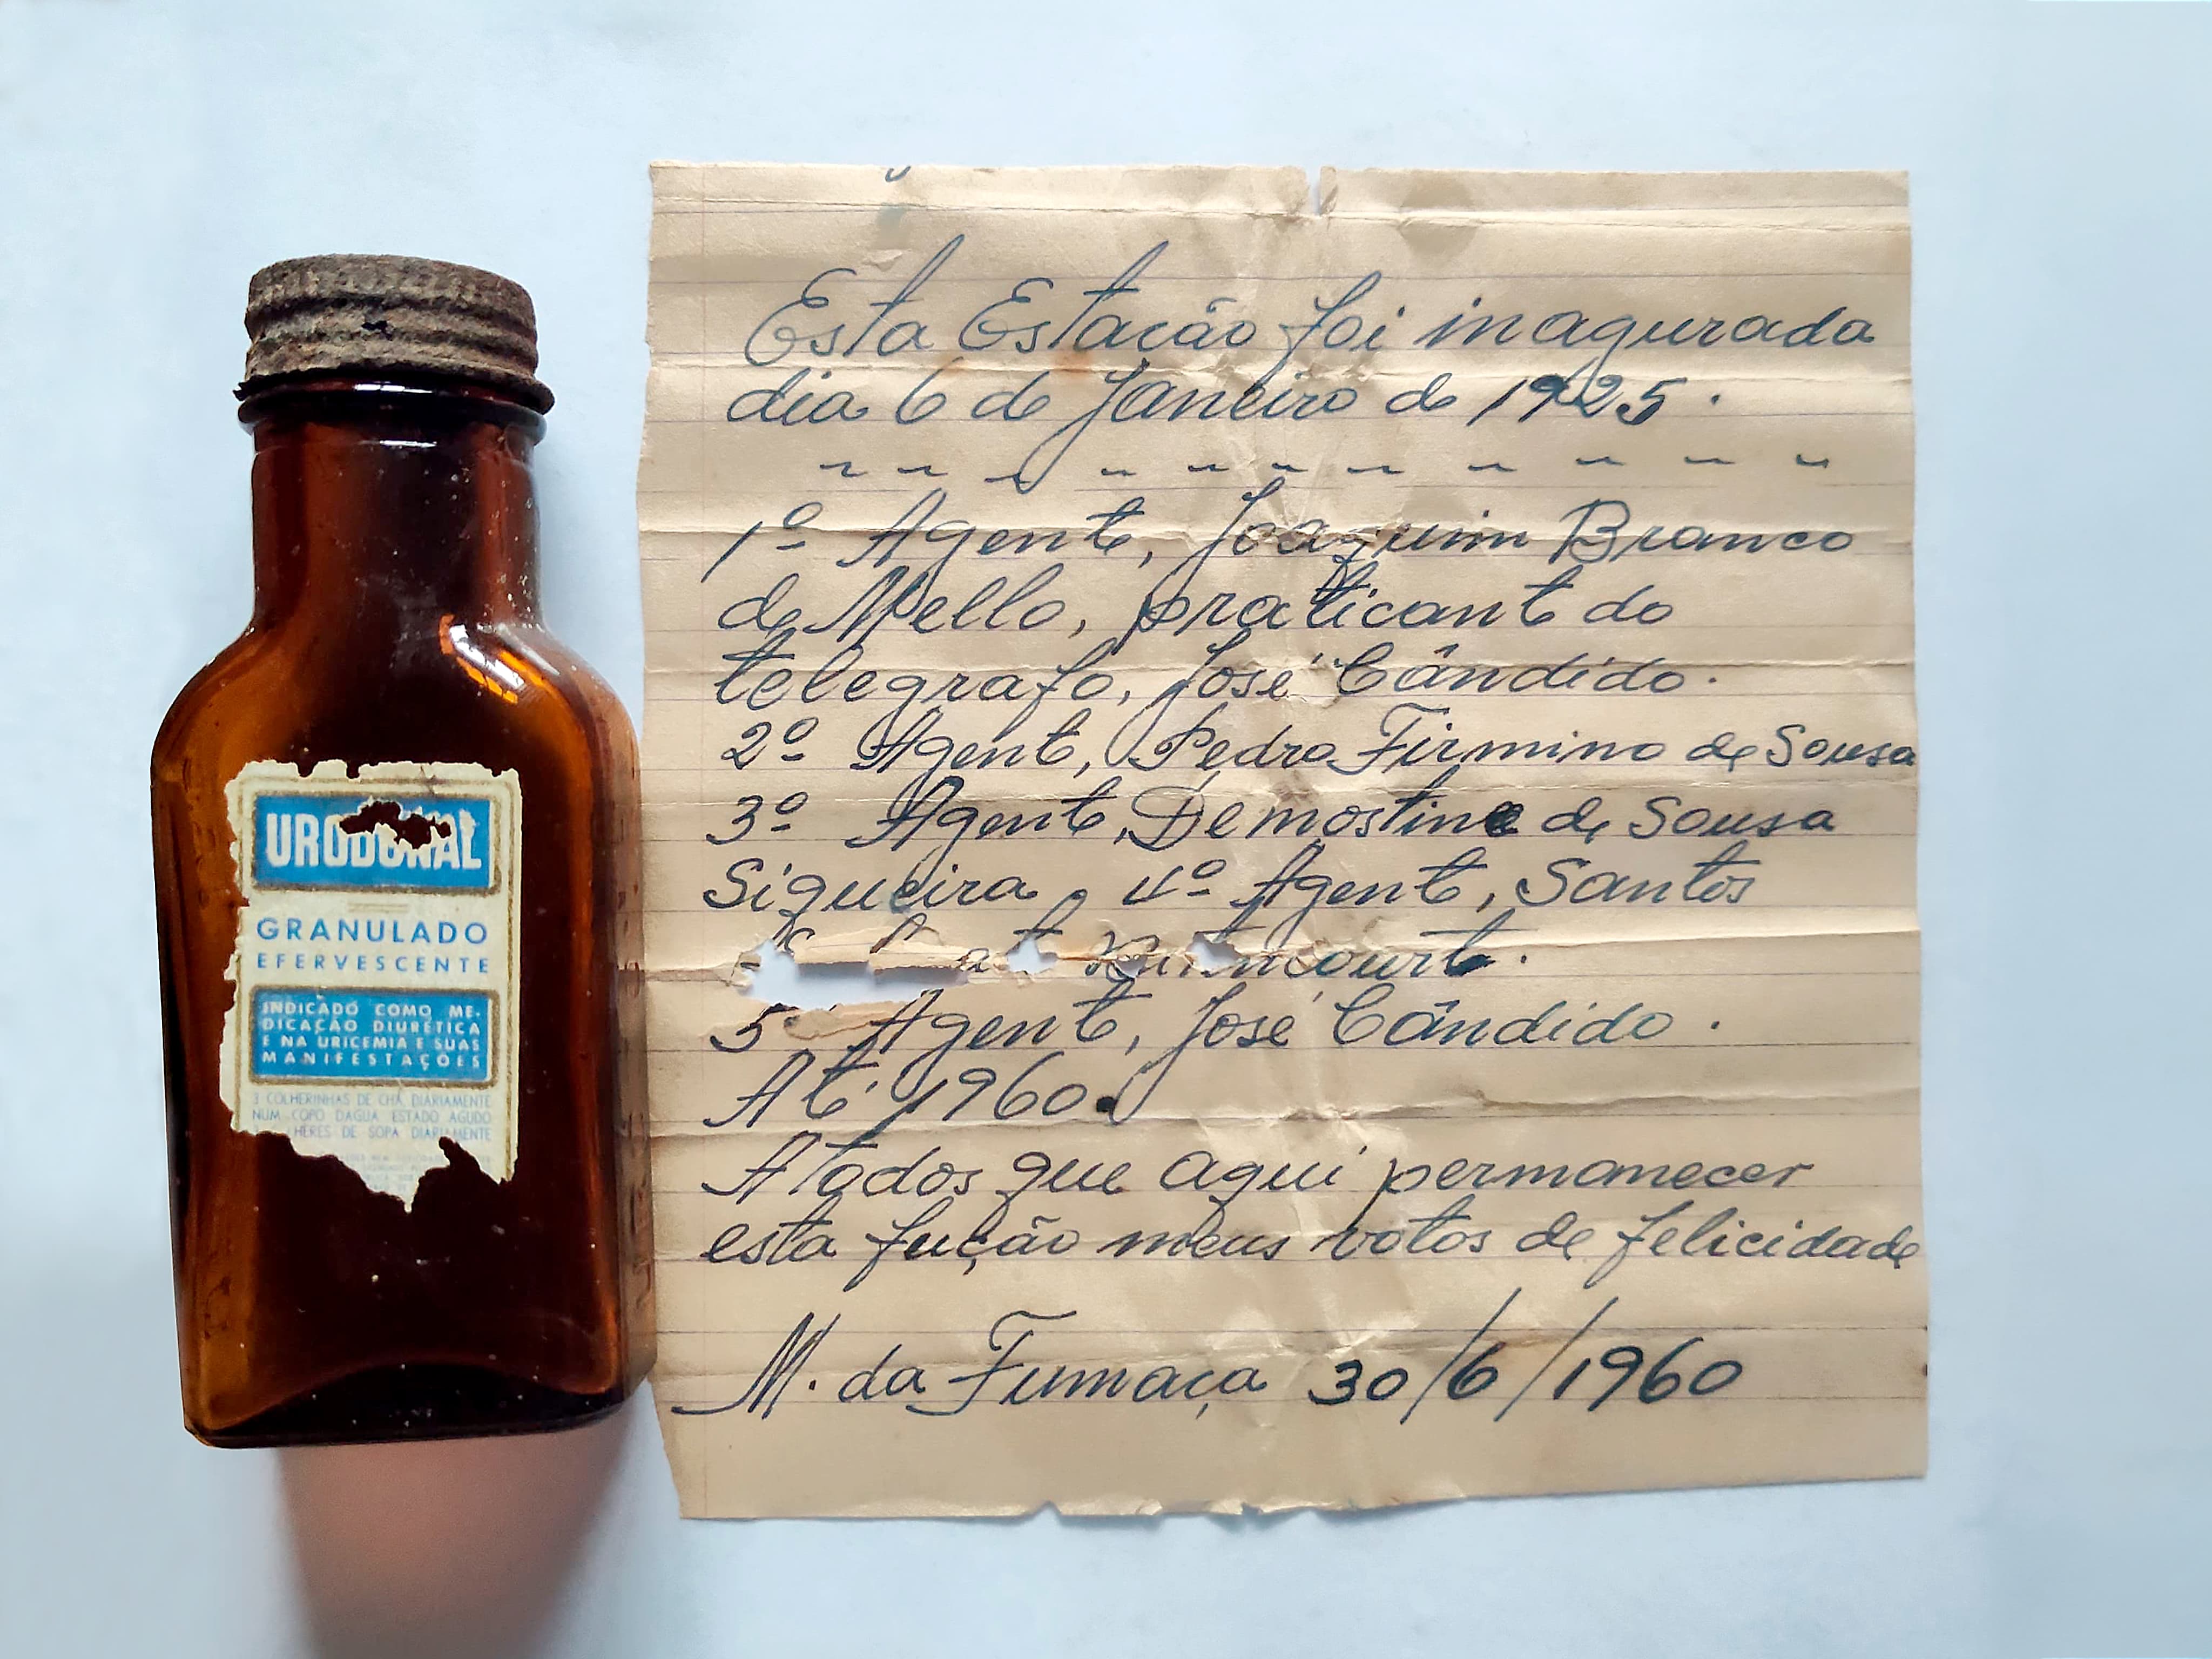 URODONAL
GRANULADO
EFERVESCENTE
INDICADO COMO ME-
DICAÇÃO DIURÉTICA
E NA URICEMIA E SUAS
MANIFESTAÇÕES
3 COLHERINHAS DE CHÁ DIARIAMENTE
NUM COPO DAGUA ESTADO AGUDO
HERES DE SOPA DIARIAMENTE
Esta Estacão foi inagurada
dia 6 de Janeiro de 1925.
1º Agente, Joaquim Branco
de Mello, praticante do
telegrafo, José Cândido.
2º Agente, Pedro Firmino de Sousa
3º Agente, Demostine de Sousa
Siqueira, 4º Agente, Santos
5º Agente, José Cândido.
Até 1960.
A todos que aqui permanecer
esta fução meus votos de felicidade
M. da Fumaça 30/6/1960